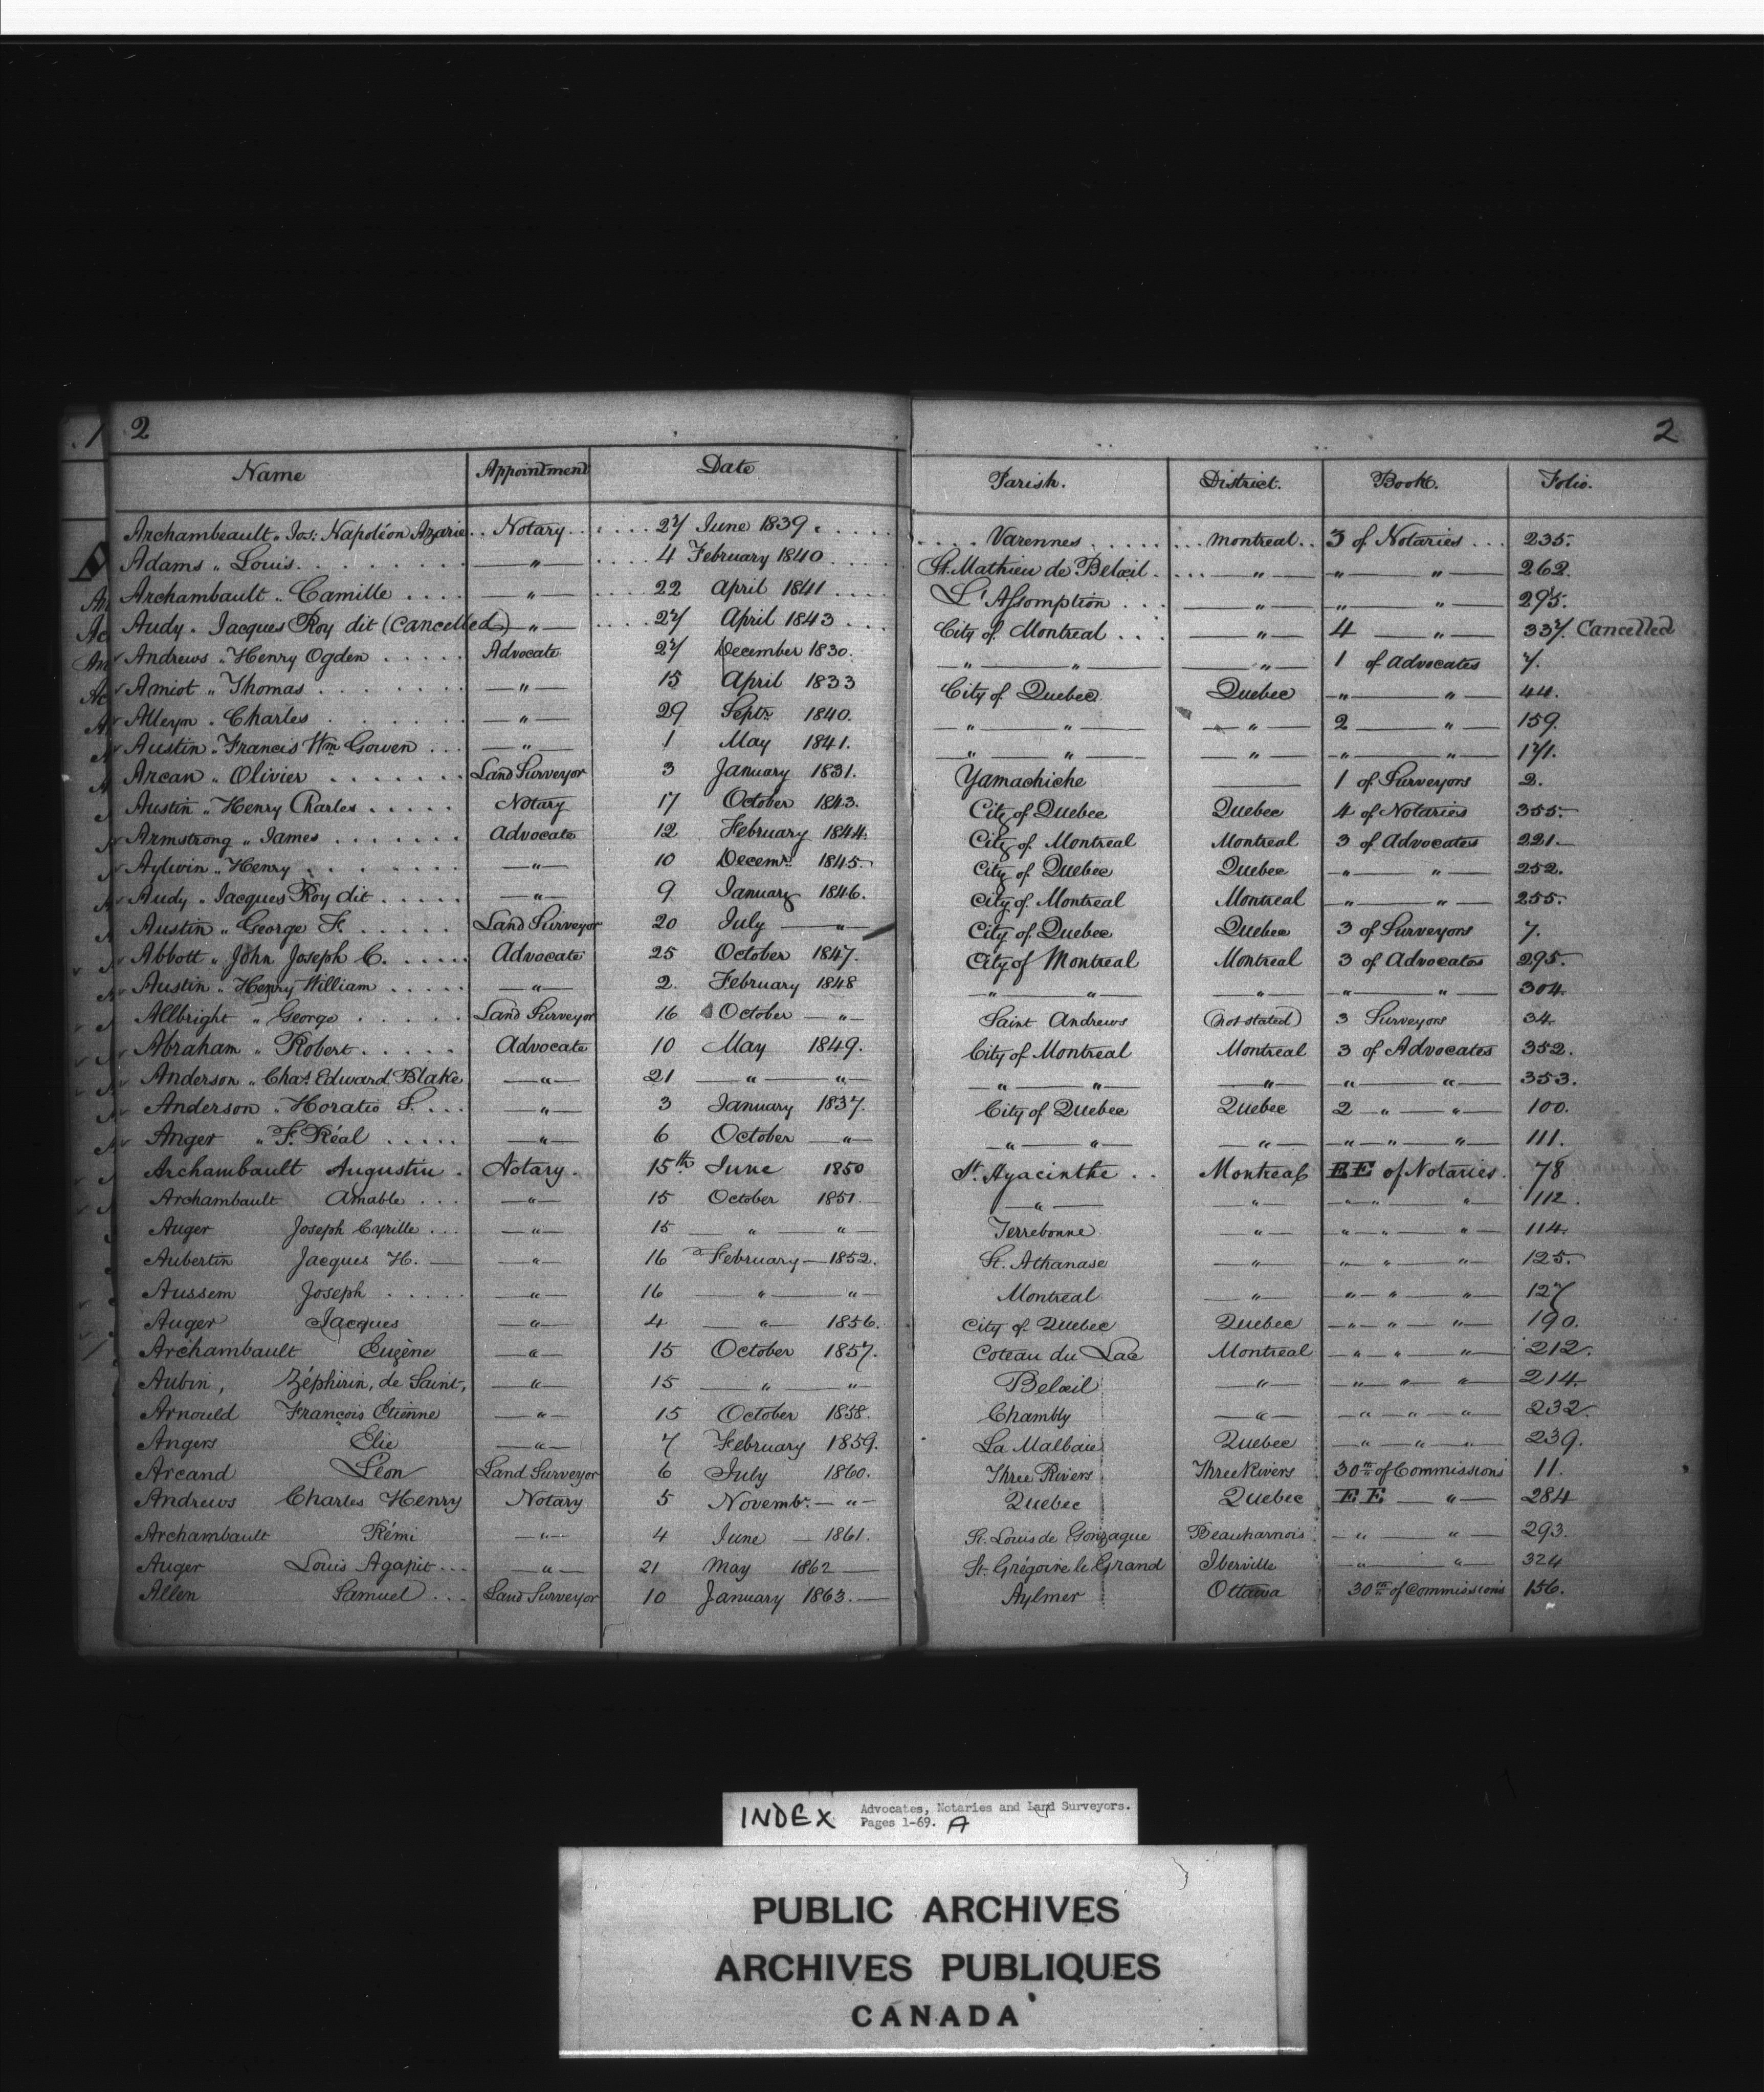 2 2
Name Appointment Date Parish. District. Book. Folio.
Archambeault „ Jos: Napoléon Azarie . . Notary . . . . . . 27 June 1839 . . . . . . . Varennes . . . . . . . . Montreal . . 3 of Notaries . . . 235.
Adams „ Louis . . . . . . . . — „ — . . . . 4 February 1840 . . . . St. Mathieu de Belœil . . . . — „ — „ — „ — 262.
Archambault „ Camille . . . . — „ — . . . . 22 April 1841 . . . . L'Assomption . . . — „ — „ — „ — 295.
Audy „ Jacques Roy dit (Cancelled) — „ — . . . . 27 April 1843 . . . City of Montreal . . . — „ — 4 — „ — 337. Cancelled
Andrews „ Henry Ogden . . . . . Advocate 27 December 1830. — „ — „ — — „ — 1 of Advocates 7.
Amiot „ Thomas . . . . . . . — „ — 15 April 1833 City of Quebec Quebec — „ — „ — 44.
Alleyn „ Charles . . . . . . . — „ — 29 Septr. 1840. — „ — „ — — „ — 2 — „ — 159.
Austin „ Francis Wm Gowen . . . — „ — 1 May 1841. — „ — „ — — „ — — „ — „ — 171.
Arcan „ Olivier . . . . . . . Land Surveyor 3 January 1831. Yamachiche —— 1 of Surveyors 2.
Austin „ Henry Charles . . . . . Notary 17 October 1843. City of Quebec Quebec 4 of Notaries 355.
Armstrong „ James . . . . . . . Advocate 12 February 1844. City of Montreal Montreal 3 of Advocates 221.
Aylwin „ Henry . . . . . . . . — „ — 10 Decemr. 1845. City of Quebec Quebec — „ — „ — 252.
Audy „ Jacques Roy dit . . . . . — „ — 9 January 1846. City of Montreal Montreal — „ — „ — 255.
Austin „ George F. . . . . . Land Surveyor 20 July — „ — City of Quebec Quebec 3 of Surveyors 7.
Abbott „ John Joseph C. . . . . . Advocate 25 October 1847. City of Montreal Montreal 3 of Advocates 295.
Austin „ Henry William . . . . . — „ — 2. February 1848 — „ — „ — — „ — — „ — „ — 304.
Allbright „ George . . . . . . Land Surveyor 16 October — „ — Saint Andrews (not stated) 3 Surveyors 34.
Abraham „ Robert . . . . . Advocate 10 May 1849. City of Montreal Montreal 3 of Advocates 352.
Anderson „ Chas. Edward Blake — „ — 21 — „ — „ — — „ — „ — — „ — — „ — „ — 353.
Anderson „ Horatio S. . . . — „ — 3 January 1837. City of Quebec Quebec 2 — „ — „ — 100.
Anger „ F. Réal . . . . . — „ — 6 October — „ — — „ — „ — — „ — — „ — „ — „ — 111.
Archambault Augustin . Notary . 15th June 1850 St. Hyacinthe . . Montreal EE of Notaries . 78
Archambault Amable . . . — „ — 15 October 1851. — „ — — „ — — „ — „ — „ — 112.
Auger Joseph Cyrille . . . — „ — 15 — „ — „ — Terrebonne — „ — — „ — „ — „ — 114.
Aubertin Jacques H. — — „ — 16 February — 1852. St. Athanase — „ — — „ — „ — „ — 125.
Aussem Joseph . . . . . — „ — 16 — „ — „ — Montreal — „ — — „ — „ — „ — 127
Auger Jacques — „ — 4 — „ — 1856. City of Quebec Quebec — „ — „ — „ — 190.
Archambault Eugène — „ — 15 October 1857. Coteau du Lac Montreal — „ — „ — „ — 212.
Aubin, Zéphirin, de Saint, — „ — 15 — „ — „ — Belœil — „ — — „ — „ — „ — 214.
Arnould François Etienne — „ — 15 October 1858. Chambly — „ — — „ — „ — „ — 232.
Angers Elie — „ — 7 February 1859. La Malbaie Quebec — „ — „ — „ — 239.
Arcand Léon Land Surveyor 6 July 1860. Three Rivers Three Rivers 30th of Commissions 11.
Andrews Charles Henry Notary 5 Novembr. — „ — Quebec Quebec EE — „ — 284
Archambault Rémi — „ — 4 June — 1861. St. Louis de Gonzague Beauharnois — „ — „ — 293.
Auger Louis Agapit . . . — „ — 21 May 1862 — St. Grégoire le Grand Iberville — „ — „ — 324
Allen Samuel . . . Land Surveyor 10 January 1863. — Aylmer Ottawa 30th of Commissions 156.
INDEX Advocates, Notaries and Land Surveyors.
Pages 1-69. A
PUBLIC ARCHIVES
ARCHIVES PUBLIQUES
CANADA